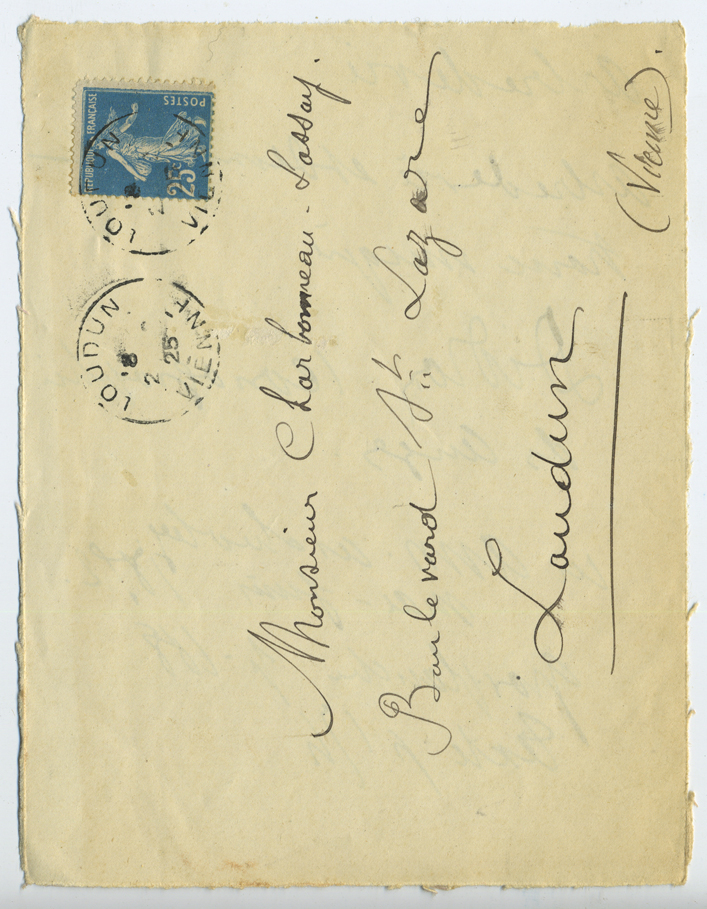 RÉPUBLIQUE FRANÇAISE
POSTES
25c
LOUDUN
VIENNE
LOUDUN
8
2
25
VIENNE
Monsieur Charbonneau-Lassay.
Boulevard St Lazare
Loudun
(Vienne).